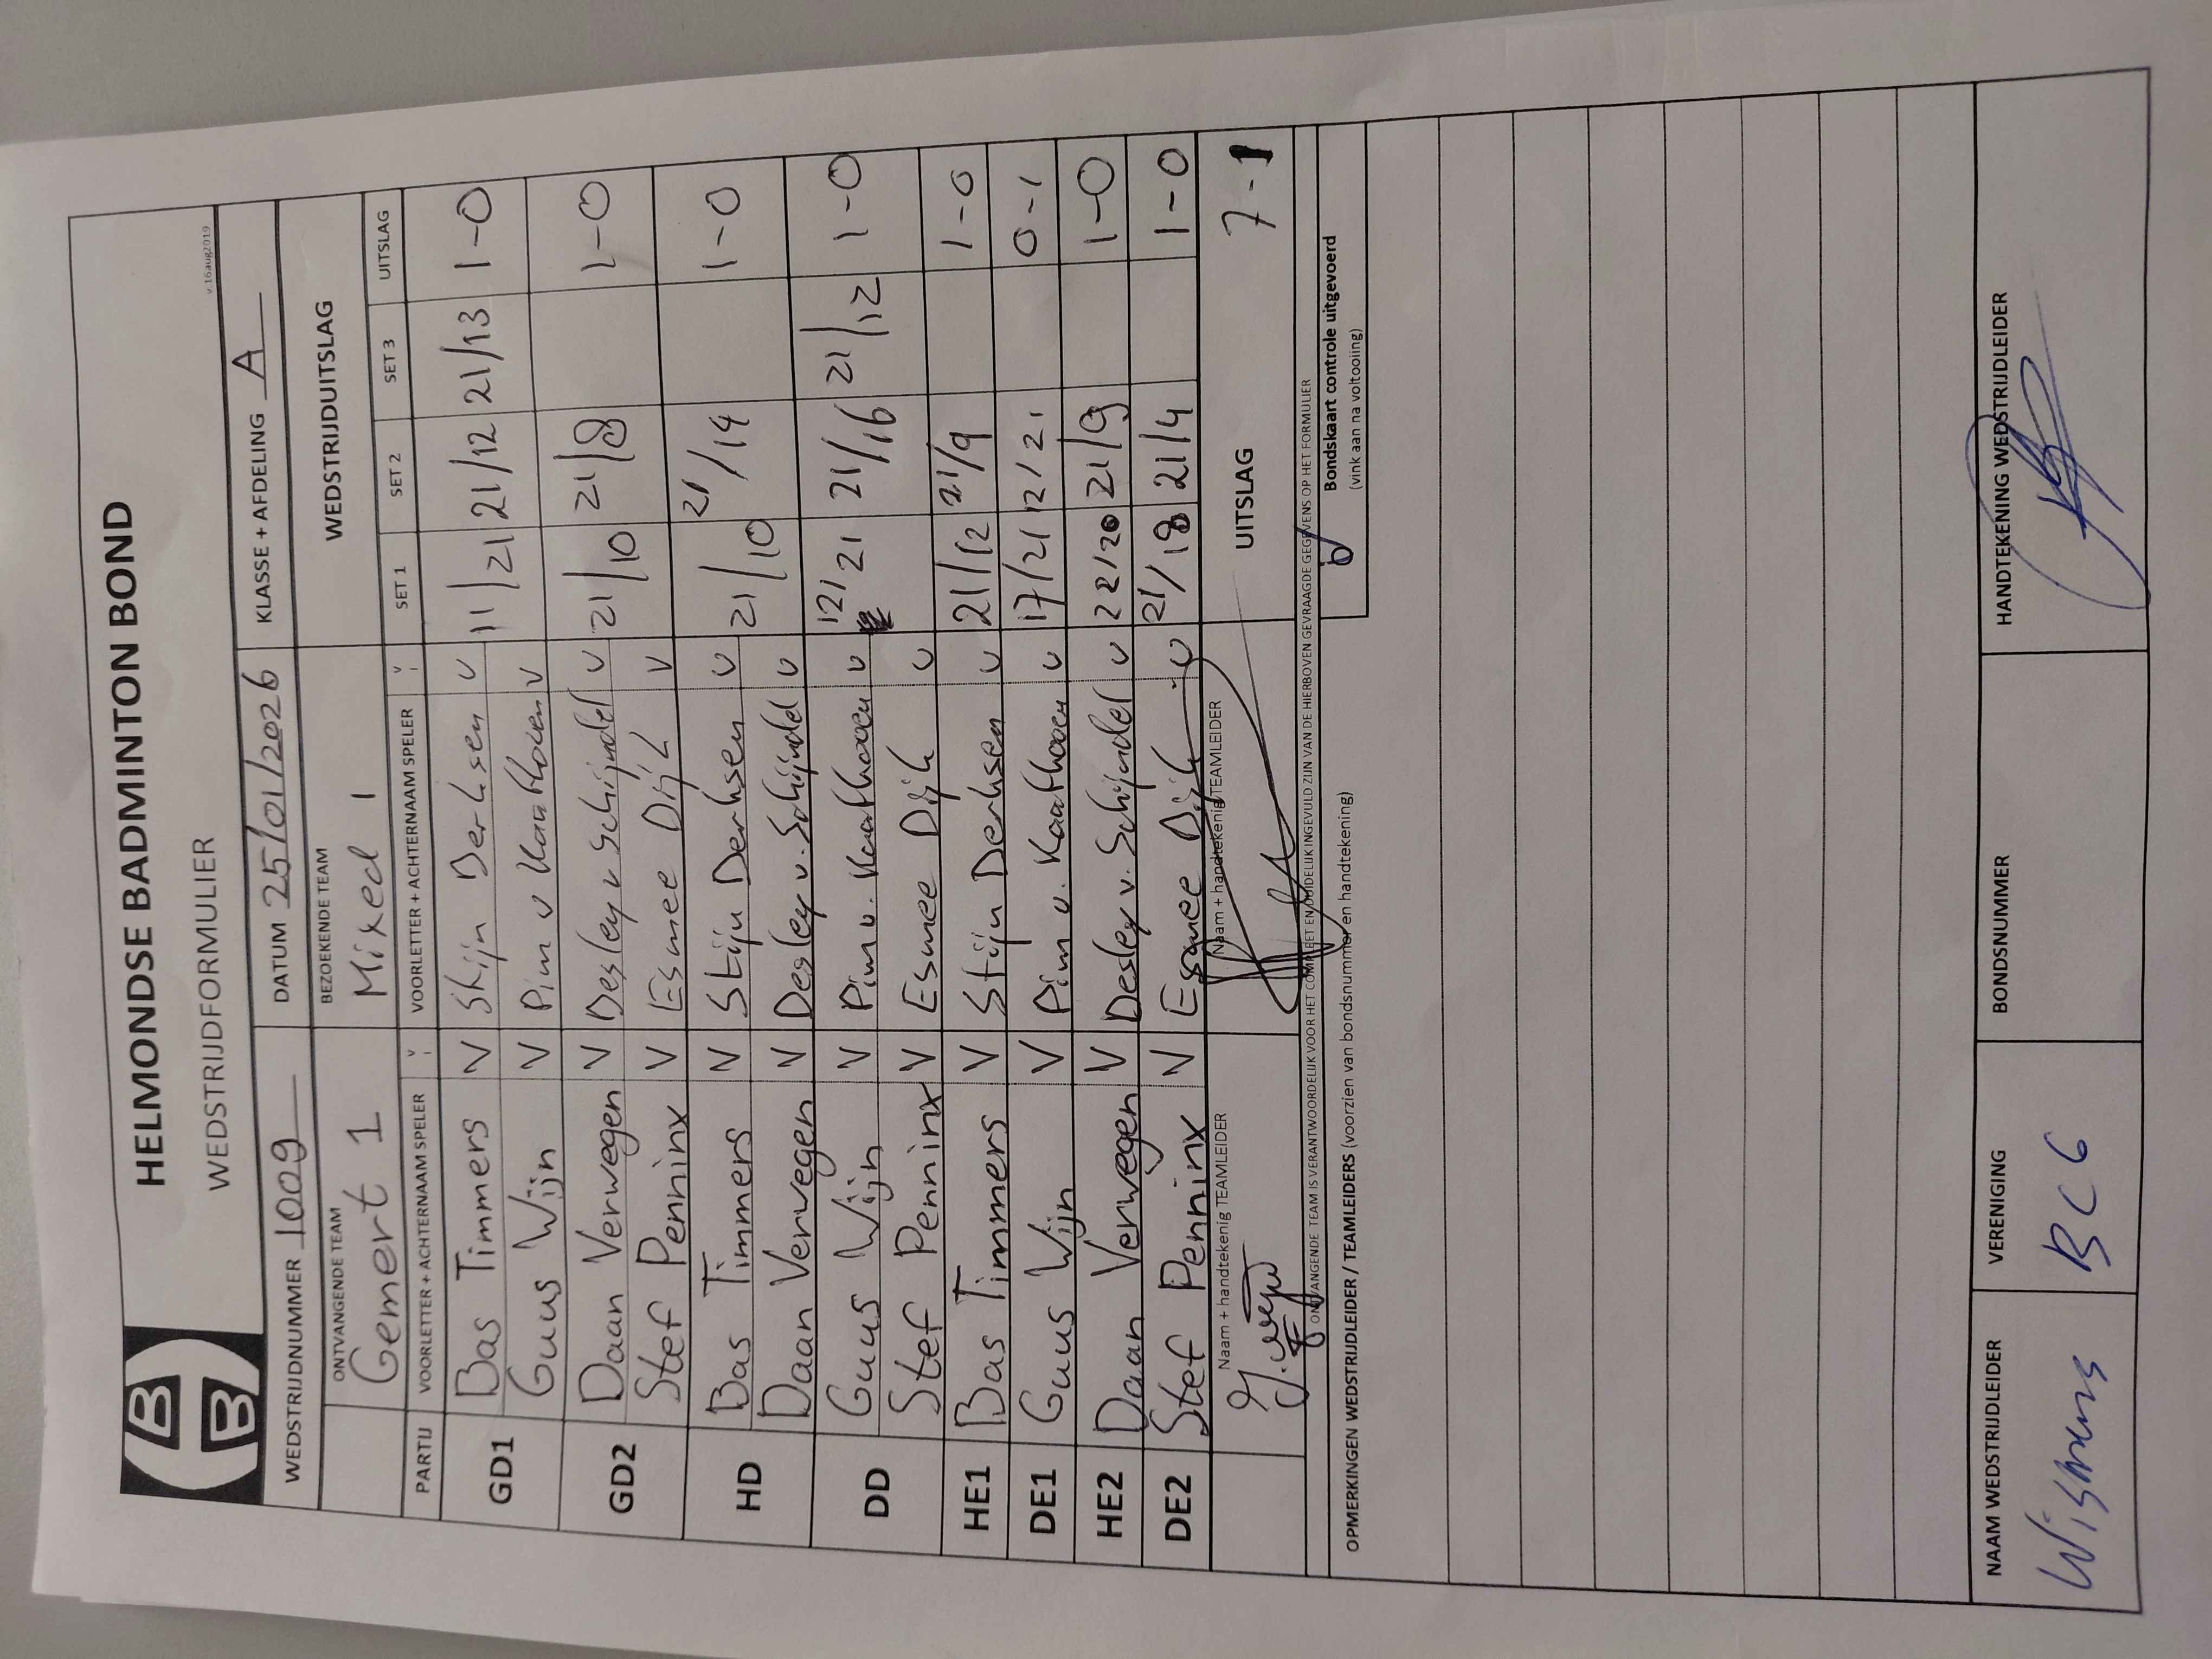 HELMONDSE BADMINTON BOND
WEDSTRIJDFORMULIER
v.16aug2019
WEDSTRIJDNUMMER 1009 DATUM 25/01/2026 KLASSE + AFDELING A
ONTVANGENDE TEAM BEZOEKENDE TEAM WEDSTRIJDUITSLAG
Gemert 1 Mixed 1
PARTIJ VOORLETTER + ACHTERNAAM SPELER V VOORLETTER + ACHTERNAAM SPELER V SET 1 SET 2 SET 3 UITSLAG
GD1 Bas Timmers V Stijn Derksen V 11/21 21/12 21/13 1-0
Guus Wijn V Pim v Kaathoven V
GD2 Daan Verwegen V Desley v Schijndel V 21/10 21/8 1-0
Stef Penninx V Esmee Dijk V
HD Bas Timmers V Stijn Derksen V 21/10 21/14 1-0
Daan Verwegen V Desley v. Schijndel V
DD Guus Wijn V Pim v. Kaathoven V 12/21 21/16 21/12 1-0
Stef Penninx V Esmee Dijk V
HE1 Bas Timmers V Stijn Derksen V 21/12 21/9 1-0
DE1 Guus Wijn V Pim v. Kaathoven V 17/21 12/21 0-1
HE2 Daan Verwegen V Desley v. Schijndel V 22/20 21/9 1-0
DE2 Stef Penninx V Esmee Dijk V 21/18 21/4 1-0
Naam + handtekenig TEAMLEIDER Naam + handtekenig TEAMLEIDER UITSLAG 7-1
ONTVANGENDE TEAM IS VERANTWOORDELIJK VOOR HET COMPLEET EN DUIDELIJK INGEVULD ZIJN VAN DE HIERBOVEN GEVRAAGDE GEGEVENS OP HET FORMULIER
Bondskaart controle uitgevoerd
(vink aan na voltooiing)
OPMERKINGEN WEDSTRIJDLEIDER / TEAMLEIDERS (voorzien van bondsnummer en handtekening)
NAAM WEDSTRIJDLEIDER VERENIGING BONDSNUMMER HANDTEKENING WEDSTRIJDLEIDER
BCG